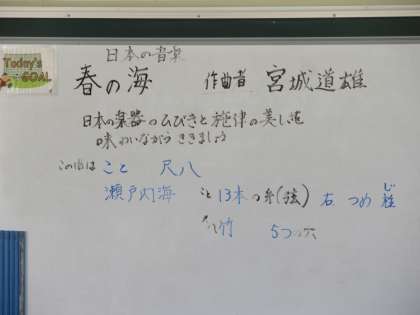 Today's
GOAL
日本の音楽
春の海 作曲者 宮城道雄
日本の楽器のひびきと旋律の美しさを
味わいながらききましょう
この曲は こと 尺八
瀬戸内海 こと 13本の糸(弦) 右 つめ 柱
じ
尺八 竹 5つの穴